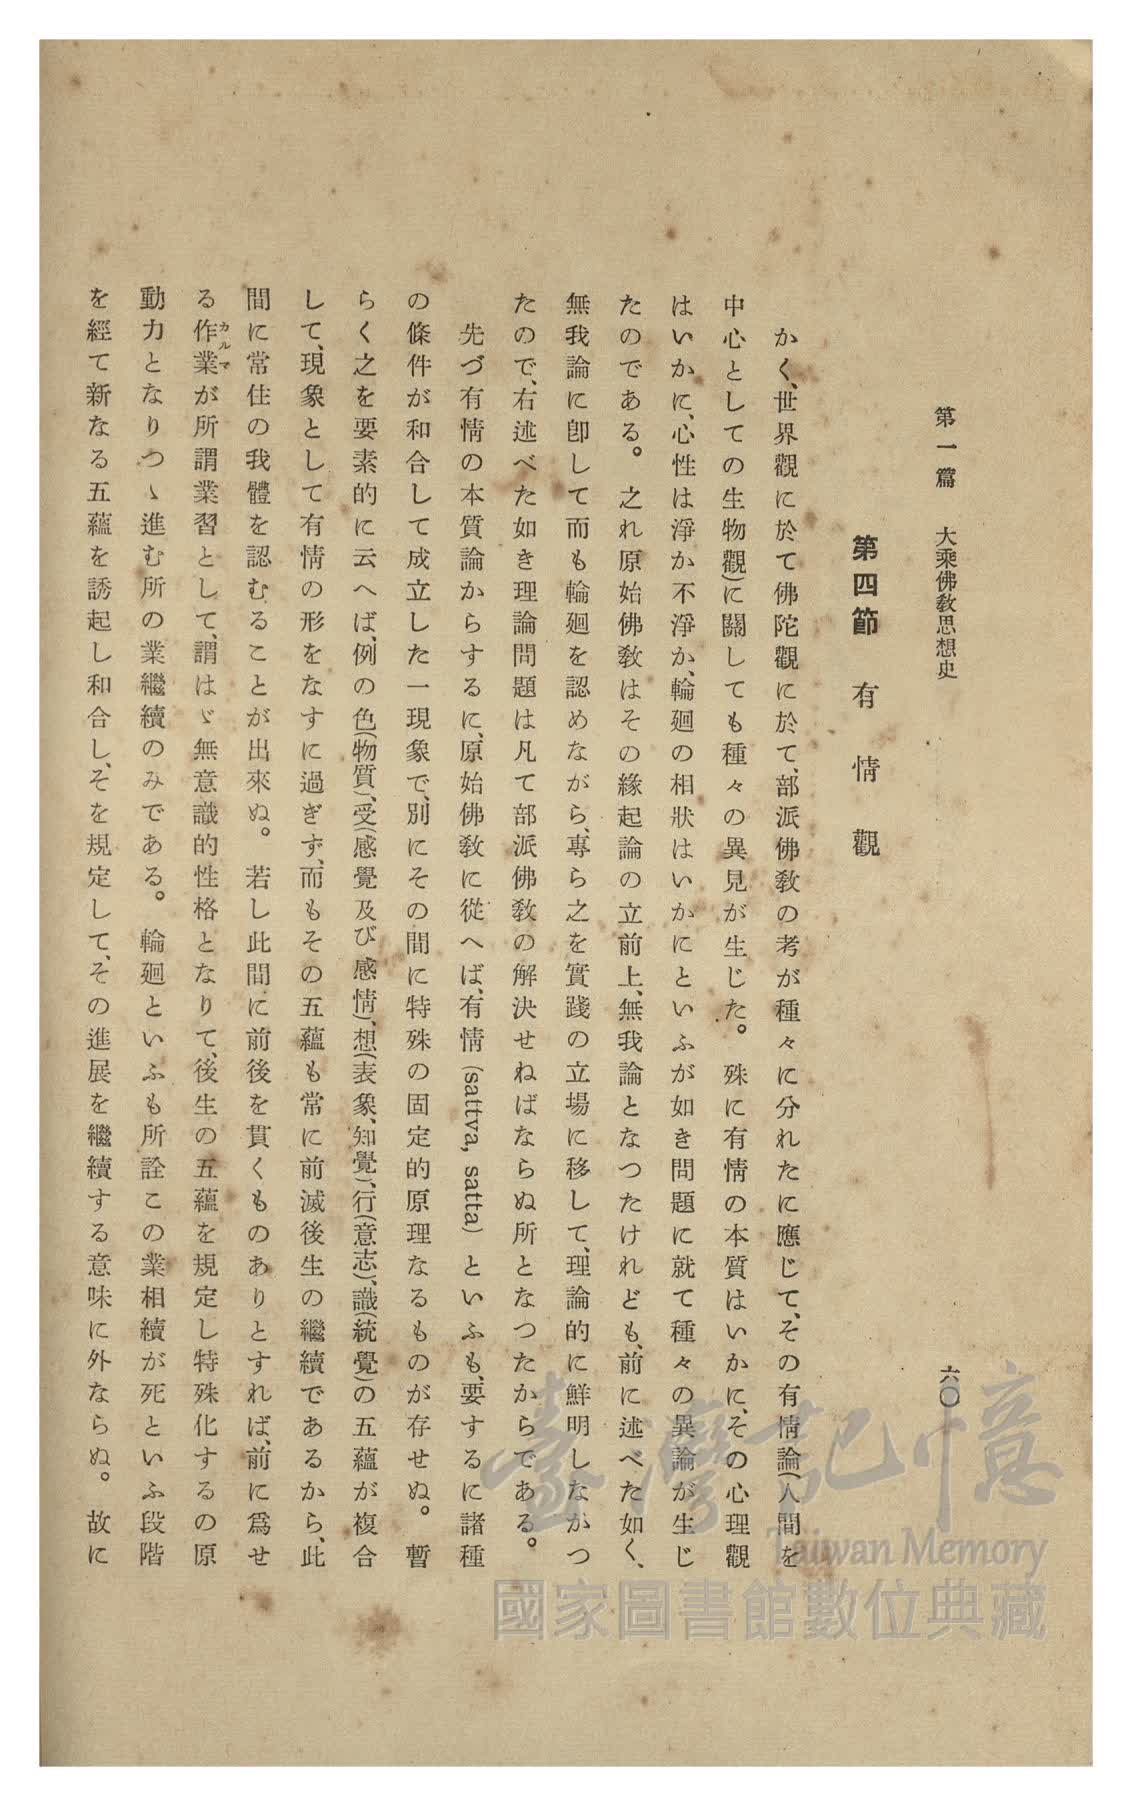 第一篇　大乘佛教思想史
六〇
第四節　有情觀
かく、世界觀に於て佛陀觀に於て、部派佛教の考が種々に分れたに應じて、その有情論(人間を
中心としての生物觀)に關しても種々の異見が生じた。殊に有情の本質はいかに、その心理觀
はいかに、心性は淨か不淨か、輪廻の相狀はいかにといふが如き問題に就て種々の異論が生じ
たのである。之れ原始佛教はその緣起論の立前上、無我論となつたけれども、前に述べた如く、
無我論に卽して而も輪廻を認めながら、專ら之を實踐の立場に移して、理論的に鮮明しなかつ
たので、右述べた如き理論問題は凡て部派佛教の解決せねばならぬ所となつたからである。
先づ有情の本質論からするに、原始佛教に從へば、有情(sattva, satta)といふも、要するに諸種
の條件が和合して成立した一現象で、別にその間に特殊の固定的原理なるものが存せぬ。暫
らく之を要素的に云へば、例の色(物質)、受(感覺及び感情)、想(表象、知覺)、行(意志)、識(統覺)の五蘊が複合
して、現象として有情の形をなすに過ぎず、而もその五蘊も常に前滅後生の繼續であるから、此
間に常住の我體を認むることが出來ぬ。若し此間に前後を貫くものありとすれば、前に爲せ
る作業カルマが所謂業習として、謂はゞ無意識的性格となりて、後生の五蘊を規定し特殊化するの原
動力となりつゝ進む所の業繼續のみである。輪廻といふも所詮この業相續が死といふ段階
を經て新なる五蘊を誘起し和合し、そを規定して、その進展を繼續する意味に外ならぬ。故に
臺灣記憶
Taiwan Memory
國家圖書館數位典藏